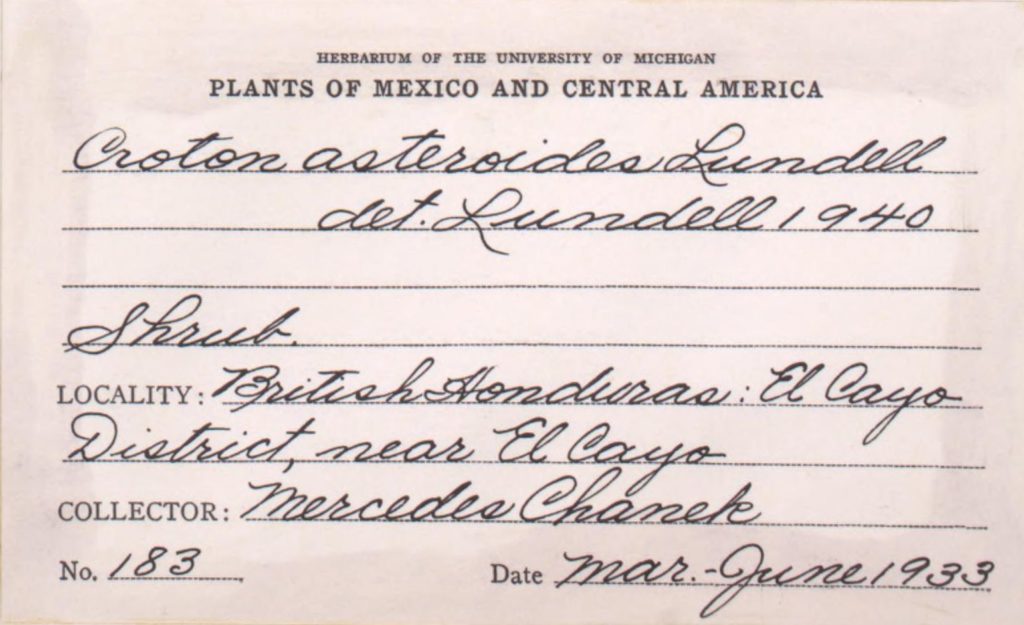 HERBARIUM OF THE UNIVERSITY OF MICHIGAN
PLANTS OF MEXICO AND CENTRAL AMERICA
Croton asteroides Lundell
det. Lundell 1940
Shrub.
LOCALITY: British Honduras: El Cayo
District, near El Cayo
COLLECTOR: Mercedes Chanek
No. 183 Date Mar.-June 1933